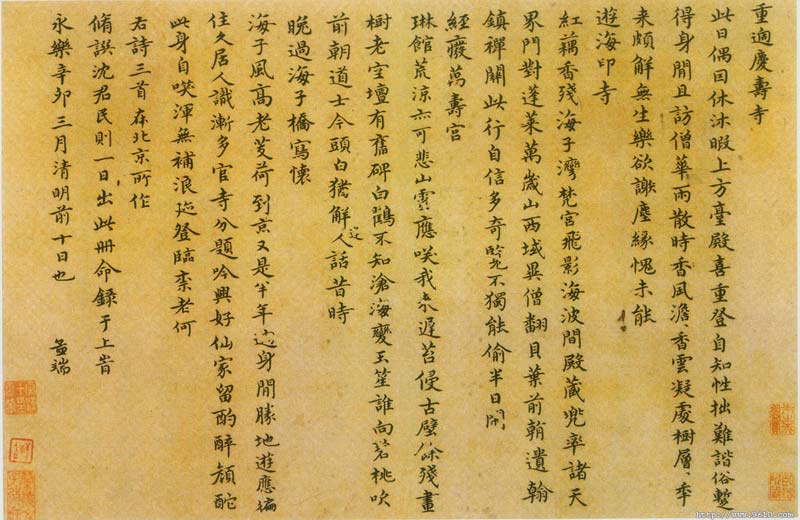 重過慶壽寺
此日偶因休沐暇上方臺殿喜重登自知性拙難諧俗暫
得身閒且訪僧華雨散時香風澹〻香雲凝處樹層〻年
來頗解無生樂欲謝塵緣愧未能
遊海印寺
紅藕香殘海子灣梵宮飛影海波間殿藏兜率諸天
界門對蓬萊萬歲山西域異僧翻貝葉前朝遺翰
鎮禪關此行自信多奇覽不獨能偷半日閒
經廢萬壽宮
琳館荒涼亦可悲山雲應笑我來遲苔侵古壁餘殘畫
樹老空壇有舊碑白鶴不知滄海變玉笙誰向碧桃吹
前朝道士今頭白猶解人話昔時
晚過海子橋寫懷
海子風高老芰荷到京又是半年過身閒勝地遊應徧
住久居人識漸多官寺分題吟興好仙家留酌醉顏酡
此身自笑渾無補浪跡登臨柰老何
右詩三首在北京所作
脩譔沈君民則一日出此冊命錄于上旹
永樂辛卯三月清明前十日也
孟端
http://www.9610.com